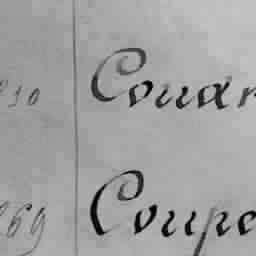 30 Couar
69 Coupe